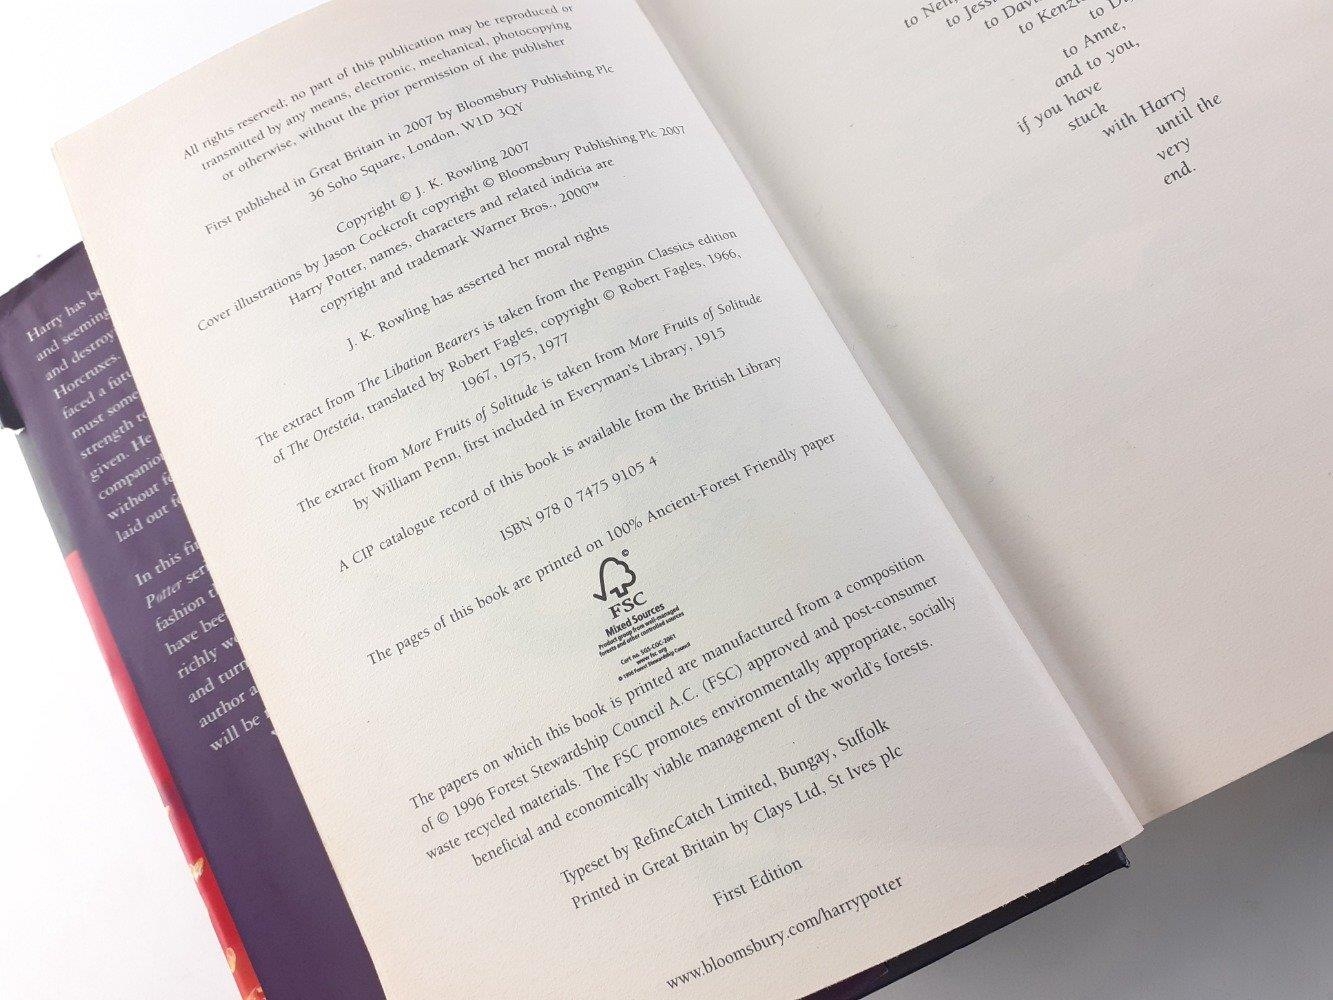 Harry has
and seeming
and destroy
Horcruxes.
faced a
must some
strength
given. He
companio
without
laid out
In this
Potter
fashion
have bee
richly
and turn
author
will be
All rights reserved; no part of this publication may be reproduced or
transmitted by any means, electronic, mechanical, photocopying
or otherwise, without the prior permission of the publisher
First published in Great Britain in 2007 by Bloomsbury Publishing Plc
36 Soho Square, London, W1D 3QY
Copyright © J. K. Rowling 2007
Cover illustrations by Jason Cockcroft copyright © Bloomsbury Publishing Plc 2007
Harry Potter, names, characters and related indicia are
copyright and trademark Warner Bros., 2000™
J. K. Rowling has asserted her moral rights
The extract from The Libation Bearers is taken from the Penguin Classics edition
of The Oresteia, translated by Robert Fagles, copyright © Robert Fagles, 1966,
1967, 1975, 1977
The extract from More Fruits of Solitude is taken from More Fruits of Solitude
by William Penn, first included in Everyman's Library, 1915
A CIP catalogue record of this book is available from the British Library
ISBN 978 0 7475 9105 4
The pages of this book are printed on 100% Ancient-Forest Friendly paper
©
FSC
Mixed Sources
Product group from well-managed
forests and other controlled sources
Cert no. SGS-COC-2061
www.fsc.org
© 1996 Forest Stewardship Council
The papers on which this book is printed are manufactured from a composition
of © 1996 Forest Stewardship Council A.C. (FSC) approved and post-consumer
waste recycled materials. The FSC promotes environmentally appropriate, socially
beneficial and economically viable management of the world's forests.
Typeset by RefineCatch Limited, Bungay, Suffolk
Printed in Great Britain by Clays Ltd, St Ives plc
First Edition
www.bloomsbury.com/harrypotter
to Neil,
to Jess
to Davi
to Kenzi
to
to Anne,
and to you,
if you have
stuck
with Harry
until the
very
end.